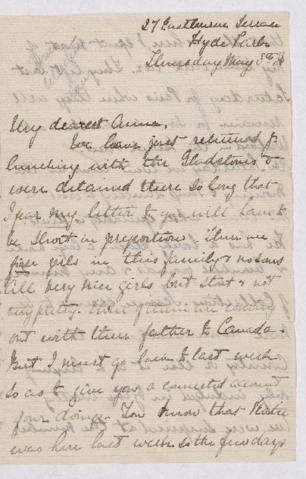 27 Eastbourne Terrace
Hyde Park
Thursday May
My dearest Anna,
We have just returned fr
lunching with the Gladstones &
were detained there so long that
I fear my letter to you will have to
be short in proportion. There are
five girls in their family & no sons
all very nice girls but stout & not
out with their father to Canada.
But I must go back to last week
so as to give you a connected account
of our doings. You know that
was here last week so the few days